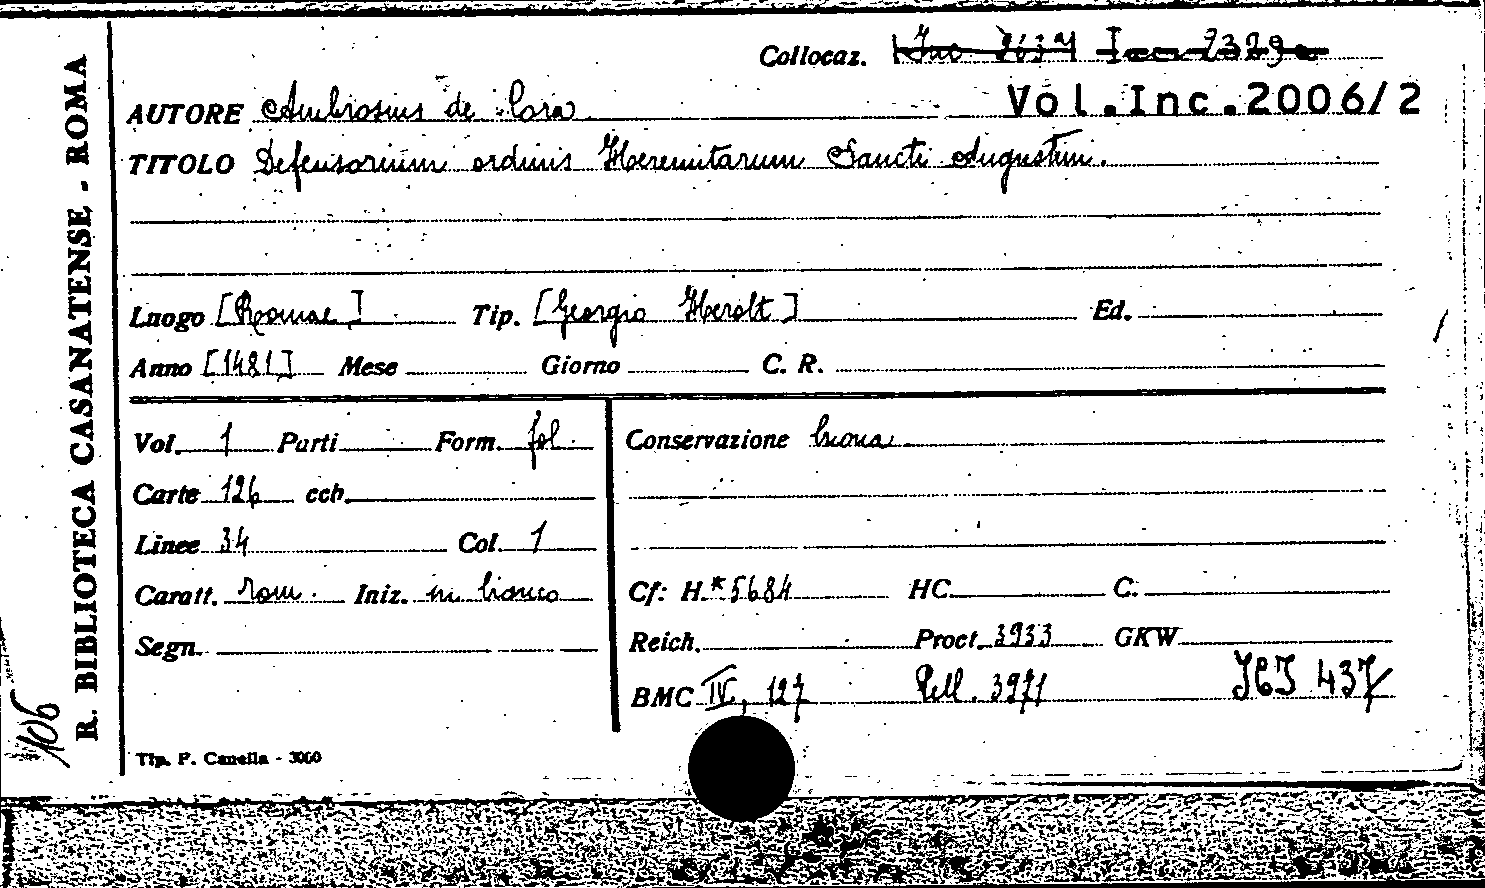 R. BIBLIOTECA CASANATENSE - ROMA
Collocaz. Inc 2631 Inc. 2329
Vol.Inc.2006/2
AUTORE Ambrosius de Cora
TITOLO Defensorium ordinis Heremitarum Sancti Augustini.
Luogo [Romae] Tip. [Georgio Herolt] Ed.
Anno [1481] Mese Giorno C. R.
Vol. 1 Parti Form. fol. Conservazione buona
Carte 126 cch.
Linee 34 Col. 1
Caratt. rom. Iniz. in bianco Cf: H.*5684 HC. C.
Segn. Reich. Proct. 3933 GKW
BMC IV, 127 Pell. 3971 IGI 437
106
Tip. F. Canella - 3000